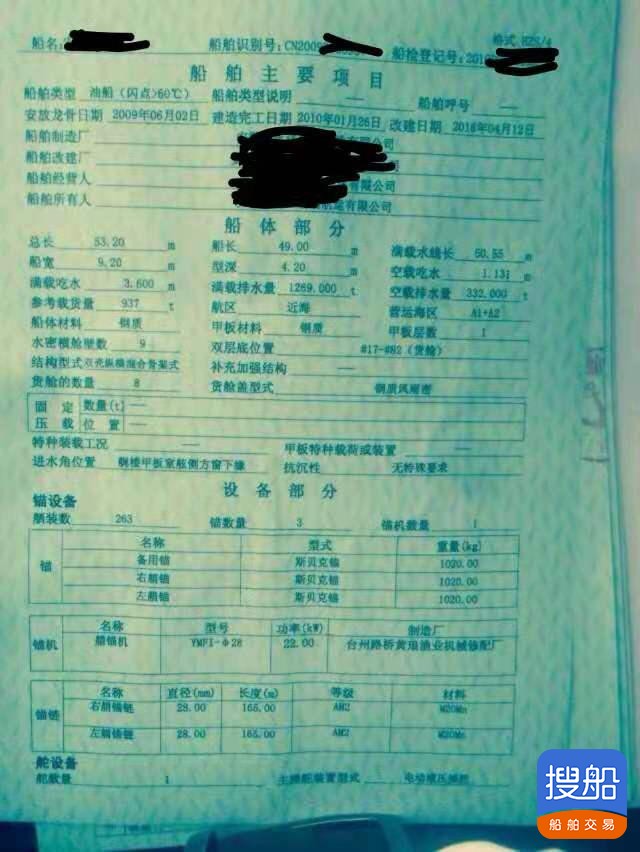 船名: 船舶识别号: CN2009 船检登记号: 2010 格式 HZS/4
船舶主要项目
船舶类型 油船(闪点>60℃) 船舶类型说明 —— 船舶呼号 ——
安放龙骨日期 2009年06月02日 建造完工日期 2010年01月26日 改建日期 2016年04月12日
船舶制造厂 公司
船舶改建厂
船舶经营人 有限公司
船舶所有人 有限公司
船体部分
总长 53.20 m 船长 49.00 m 满载水线长 50.55 m
船宽 9.20 m 型深 4.20 m 空载吃水 1.131 m
满载吃水 3.600 m 满载排水量 1269.000 t 空载排水量 332.000 t
参考载货量 937 t 航区 近海 营运海区 A1+A2
船体材料 钢质 甲板材料 钢质 甲板层数 1
水密横舱壁数 9 双层底位置 #17-#82(货舱)
结构型式 双壳纵横混合骨架式 补充加强结构 ——
货舱的数量 8 货舱盖型式 钢质风雨密
固定 数量(t) ——
压载 位置 ——
特种装载工况 —— 甲板特种载荷或装置 ——
进水角位置 艉楼甲板室舷侧方窗下缘 抗沉性 无特殊要求
设备部分
锚设备
舾装数 263 锚数量 3 锚机数量 1
名称 型式 重量(kg)
锚 备用锚 斯贝克锚 1020.00
右艏锚 斯贝克锚 1020.00
左艏锚 斯贝克锚 1020.00
名称 型号 功率(kW) 制造厂
锚机 艏锚机 YMFI-Φ28 22.00 台州路桥黄琅渔业机械修配厂
名称 直径(mm) 长度(m) 等级 材料
锚链 右艏锚链 28.00 165.00 AM2 M20Mn
左艏锚链 28.00 165.00 AM2 M20Mn
舵设备
舵数量 1 主操舵装置型式 电动液压操舵
搜船
船舶交易